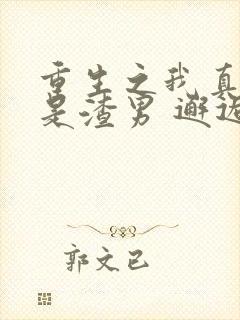 重生之我真
是渣男 邂逅
郭文已